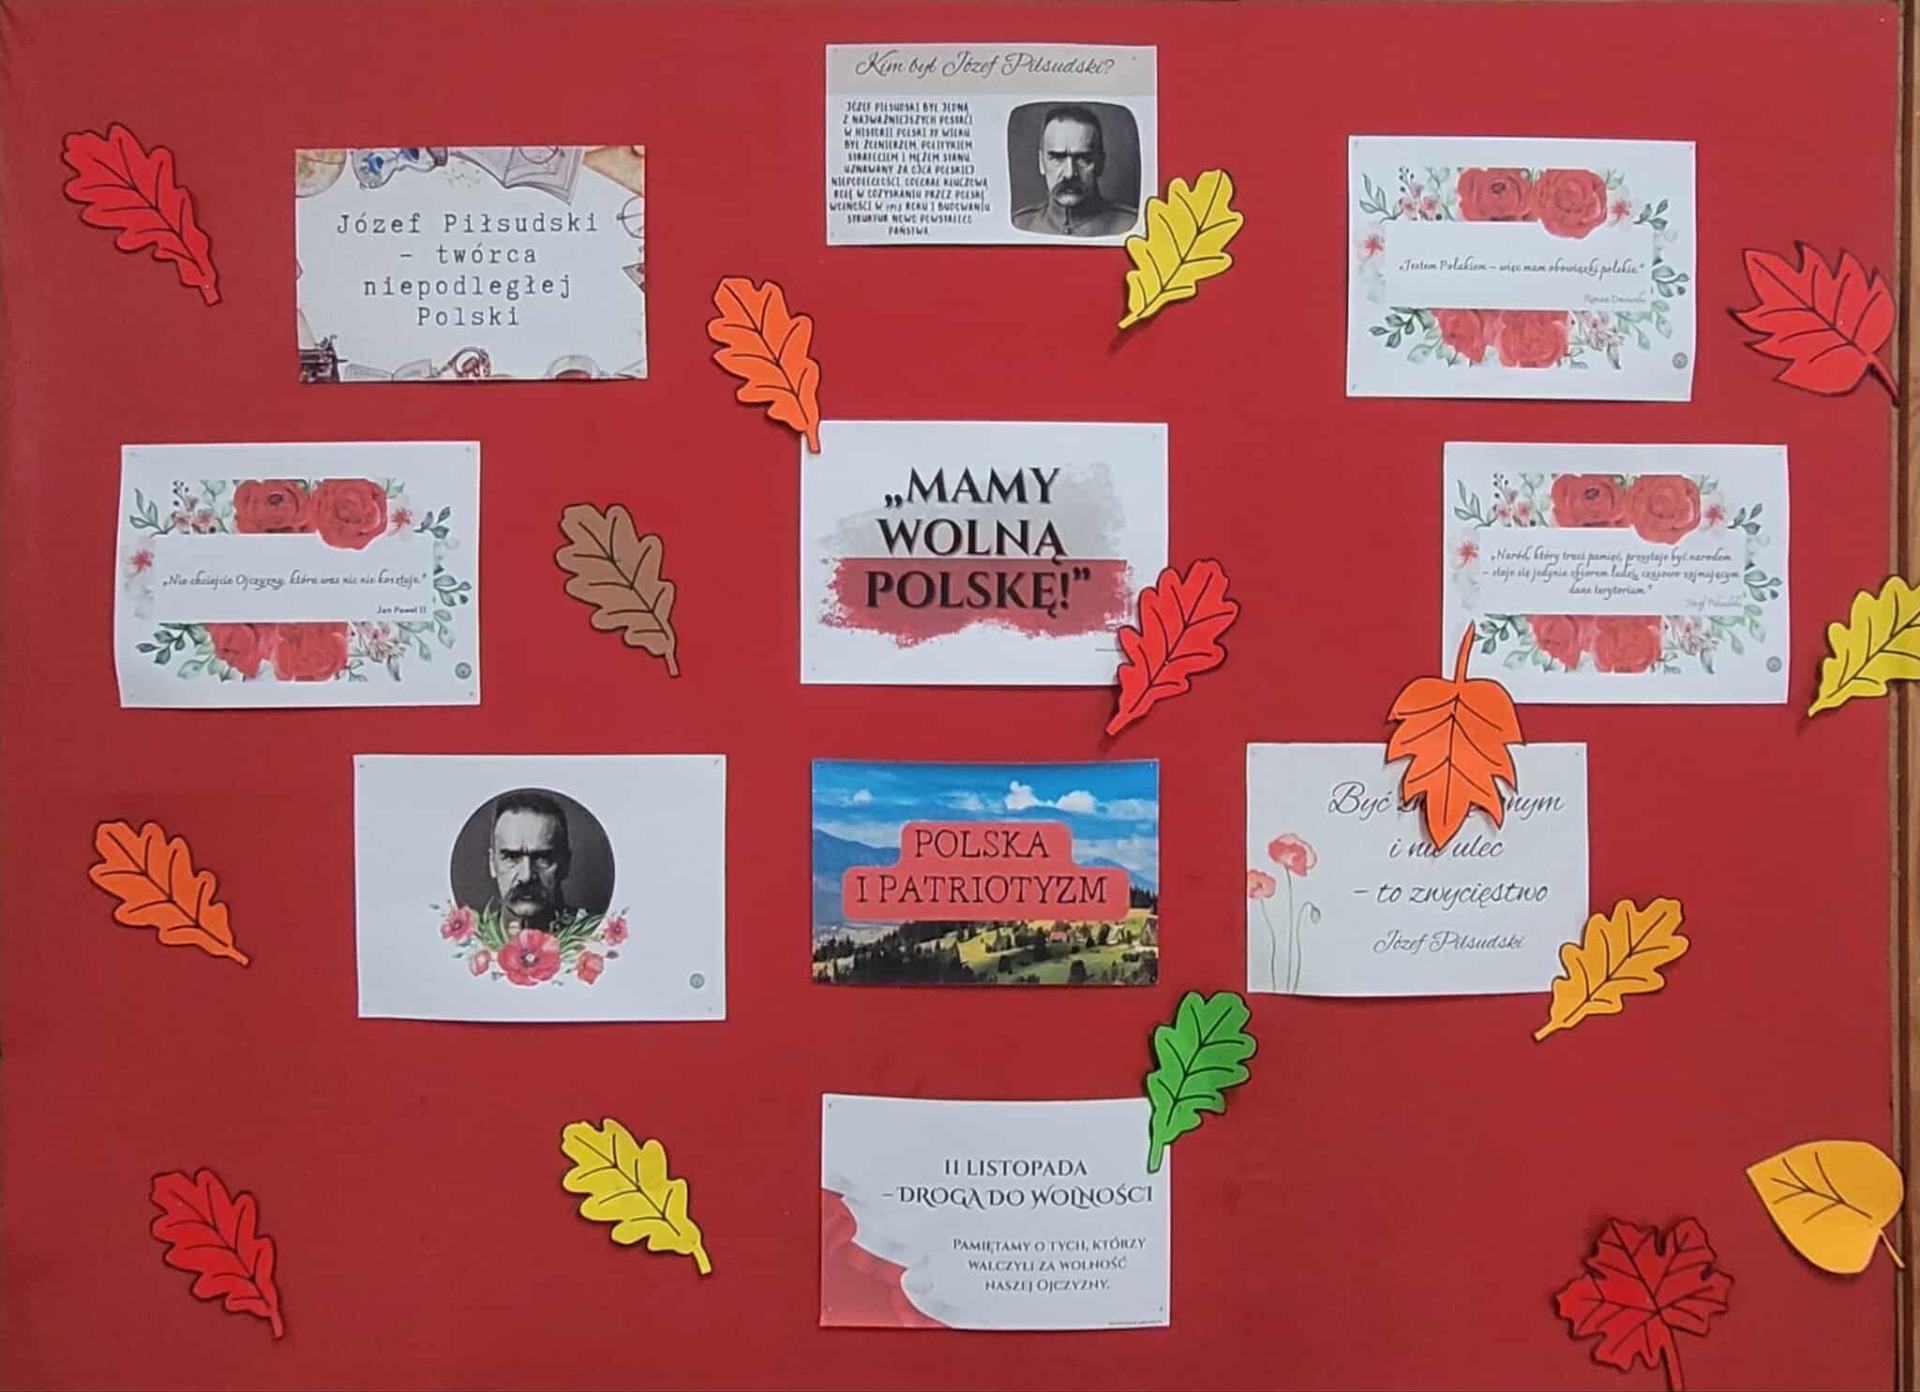 Kim był Józef Piłsudski?
JÓZEF PIŁSUDSKI BYŁ JEDNĄ
Z NAJWAŻNIEJSZYCH POSTACI
W HISTORII POLSKI XX WIEKU.
BYŁ ŻOŁNIERZEM, POLITYKIEM
STRATEGIEM I MĘŻEM STANU.
UZNAWANY ZA OJCA POLSKIEJ
NIEPODLEGŁOŚCI, ODEGRAŁ KLUCZOWĄ
ROLĘ W ODZYSKANIU PRZEZ POLSKĘ
WOLNOŚCI W 1918 ROKU I BUDOWANIU
STRUKTUR NOWO POWSTAŁEGO
PAŃSTWA.
Józef Piłsudski
– twórca
niepodległej
Polski
„Jestem Polakiem – więc mam obowiązki polskie."
Roman Dmowski
„Nie chciejcie Ojczyzny, która was nic nie kosztuje."
Jan Paweł II
„MAMY
WOLNĄ
POLSKĘ!”
„Naród, który traci pamięć, przestaje być narodem
– staje się jedynie zbiorem ludzi, czasowo zajmującym
dane terytorium."
Józef Piłsudski
POLSKA
I PATRIOTYZM
Być
i nie ulec
– to zwycięstwo
Józef Piłsudski
11 LISTOPADA
– DROGA DO WOLNOŚCI
PAMIĘTAMY O TYCH, KTÓRZY
WALCZYLI ZA WOLNOŚĆ
NASZEJ OJCZYZNY.